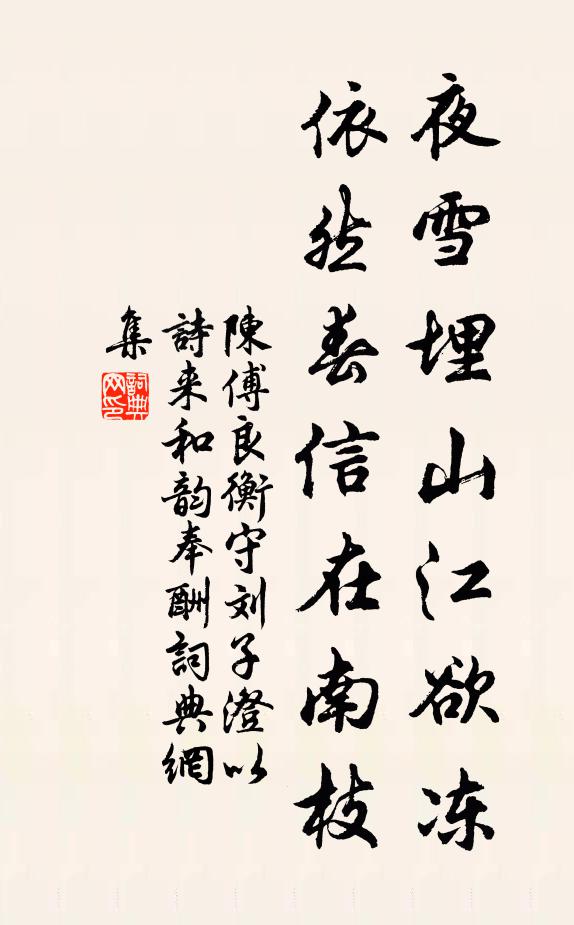 夜雪埋山江欲冻
依然春信在南枝
陳傅良衡守刘子澄以
詩来和韵奉酬詞典網
集
詞典網印